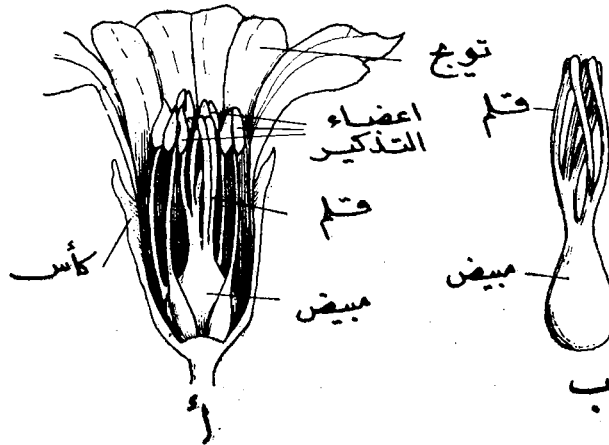 تويج
اعضاء
التذكير
قلم
كأس
مبيض
أ
قلم
مبيض
ب